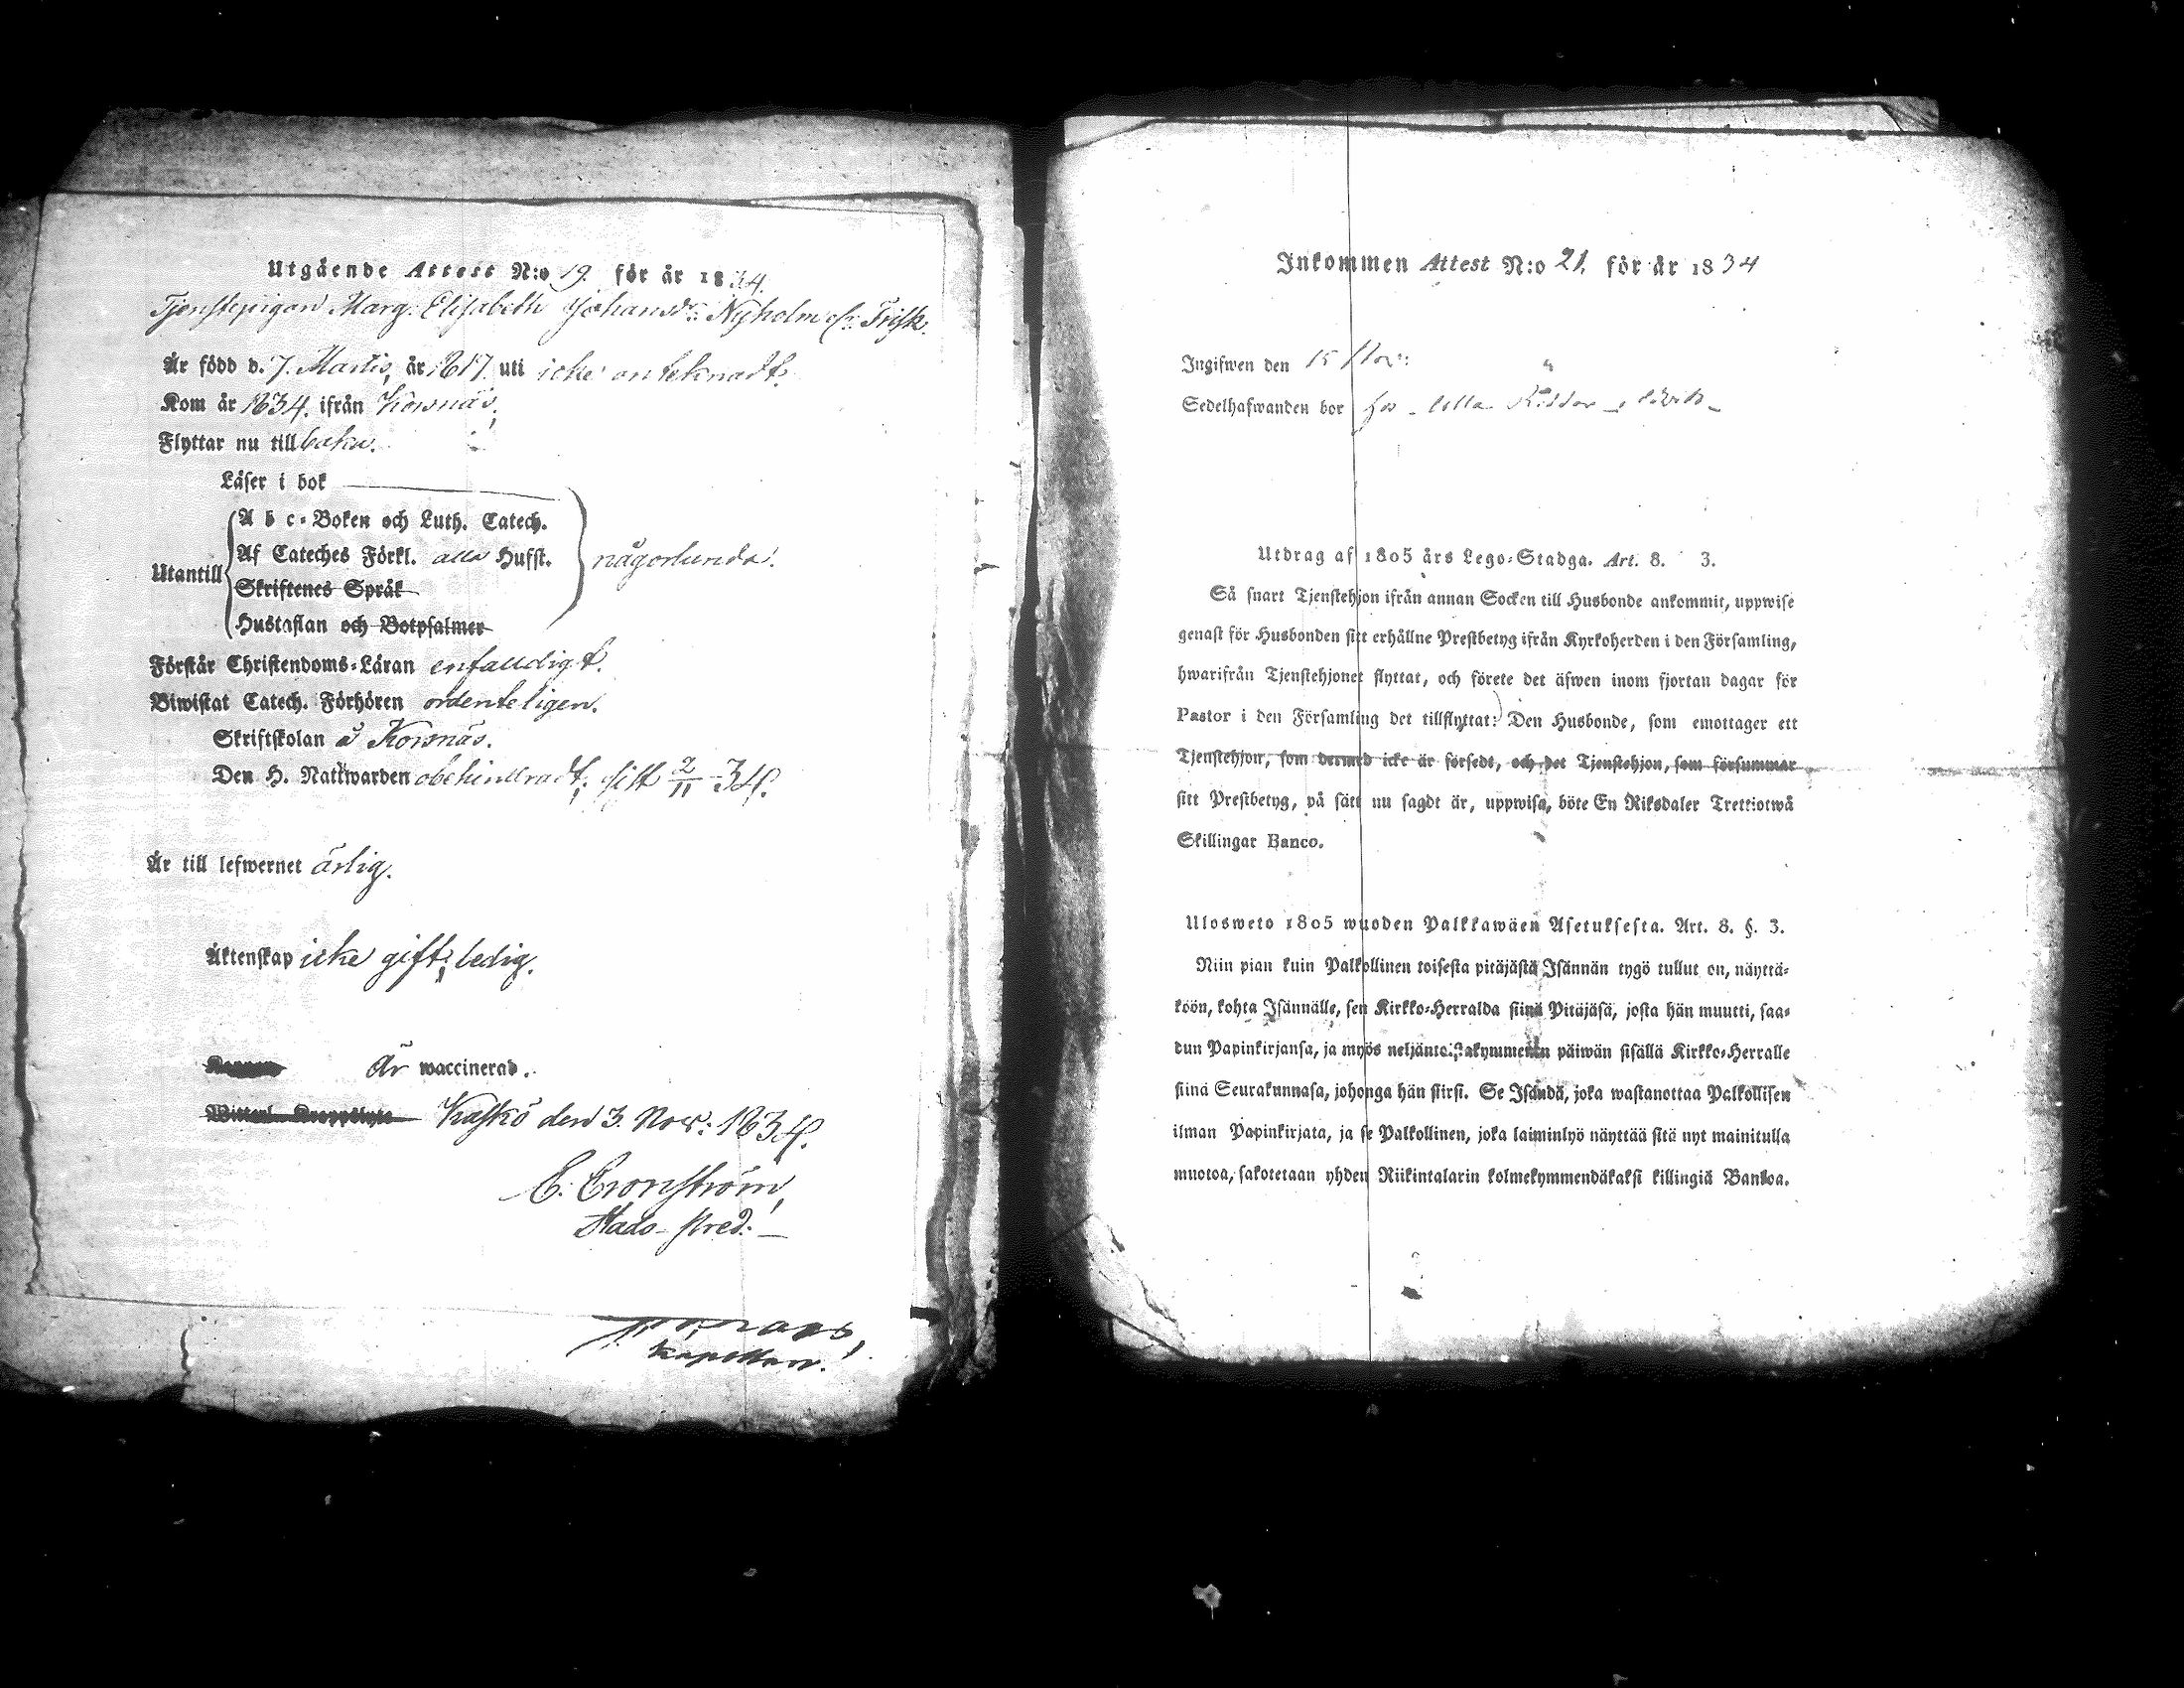 Utgående Attest N:o 19. för år 1834.
Tjenstepigan Marg. Elisabeth Johansdr: Nyholm el: Frisk.
Är född d. 7. Martii, år 1817. uti icke antecknadt.
Kom år 1834. ifrån Korsnäs.
Flyttar nu till baka.
Läser i bok
A b c-Boken och Luth. Catech.
Utantill Af Cateches Förkl. alla Hufst. någorlunda.
Skriftenes Språk
Hustaflan och Botpsalmer
Förstår Christendoms-Läran enfaldigt.
Biwistat Catech. Förhören ordenteligen.
Skriftskolan å Korsnäs.
Den H. Nattwarden obehindradt, sist 2/11 34.
Är till lefwernet ärlig.
Äktenskap icke gift, ledig.
Är waccinerad.
Kaskö den 3. Nov: 1834.
E. Cronström,
Stads-Pred.
Kapellan.
Inkommen Attest N:o 21. för år 1834
Ingifwen den 15 Nov:
Sedelhafwanden bor hos
Utdrag af 1805 års Lego-Stadga. Art. 8. 3.
Så snart Tjenstehjon ifrån annan Socken till Husbonde ankommit, uppwise
genast för Husbonden sitt erhållne Prestbetyg ifrån Kyrkoherden i den Församling,
hwarifrån Tjenstehjonet flyttat, och förete det äfwen inom fjortan dagar för
Pastor i den Församling det tillflyttat: Den Husbonde, som emottager ett
Tjenstehjon, som dermed icke är försedt, och det Tjenstehjon, som försummar
sitt Prestbetyg, på sätt nu sagdt är, uppwisa, böte En Riksdaler Trettiotwå
Skillingar Banco.
Ulosweto 1805 wuoden Palkkawäen Asetuksesta. Art. 8. §. 3.
Niin pian kuin Palkollinen toisesta pitäjästä Isännän tygö tullut on, näyttä-
köön, kohta Isännälle, sen Kirkko-Herralda siinä Pitäjäsä, josta hän muutti, saa-
dun Papinkirjansa, ja myös neljäntoistakymmenän päiwän sisällä Kirkko-Herralle
siinä Seurakunnasa, johonga hän siirsi. Se Isändä, joka wastanottaa Palkollisen
ilman Papinkirjata, ja se Palkollinen, joka laiminlyö näyttää sitä nyt mainitulla
muotoa, sakotetaan yhden Riikintalarin kolmekymmendäkaksi killingiä Bankoa.